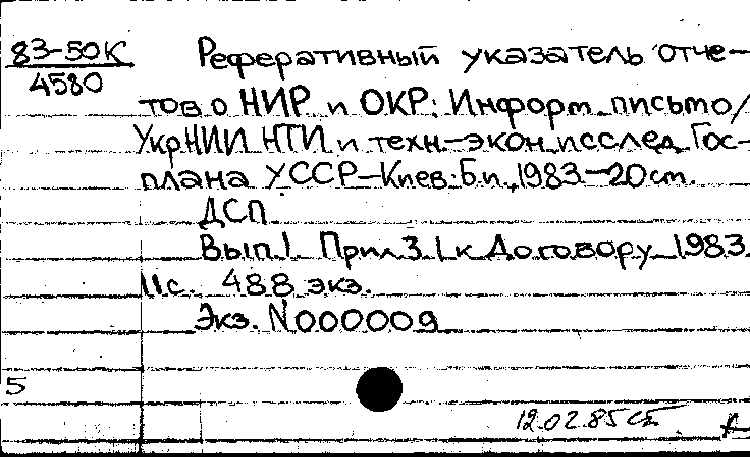 83-50К
4580
Реферативный указатель отче-
тов о НИР и ОКР: Информ. письмо/
УкрНИИ НТИ и техн.-экон. исслед. Гос-
плана УССР.-Киев: Б.и., 1983.-20см.
ДСП
Вып.1. Прил.3.1 к Договору. 1983.
11с. 488 экз.
Экз. N000009
5
12.02.85